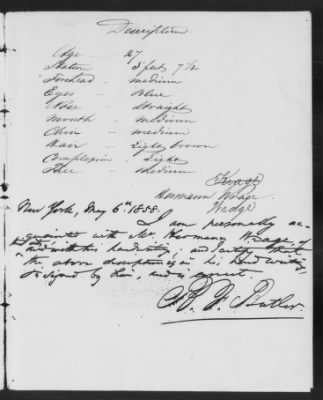 Description
Age - 27
Stature 5 feet 7 1/2
Forehead - medium
Eyes - Blue
Nose - straight
Mouth - medium
Chin - medium
Hair - Light brown
Complexion - Light
Face Medium
Hermann Wrage
New York, May 6th 1858.
I am personally ac-
quainted with Mr. Hermann Wrage
and with his handwriting, and certify that
the above description is in his hand writing,
& signed by him, and is correct
B. F. Butler.